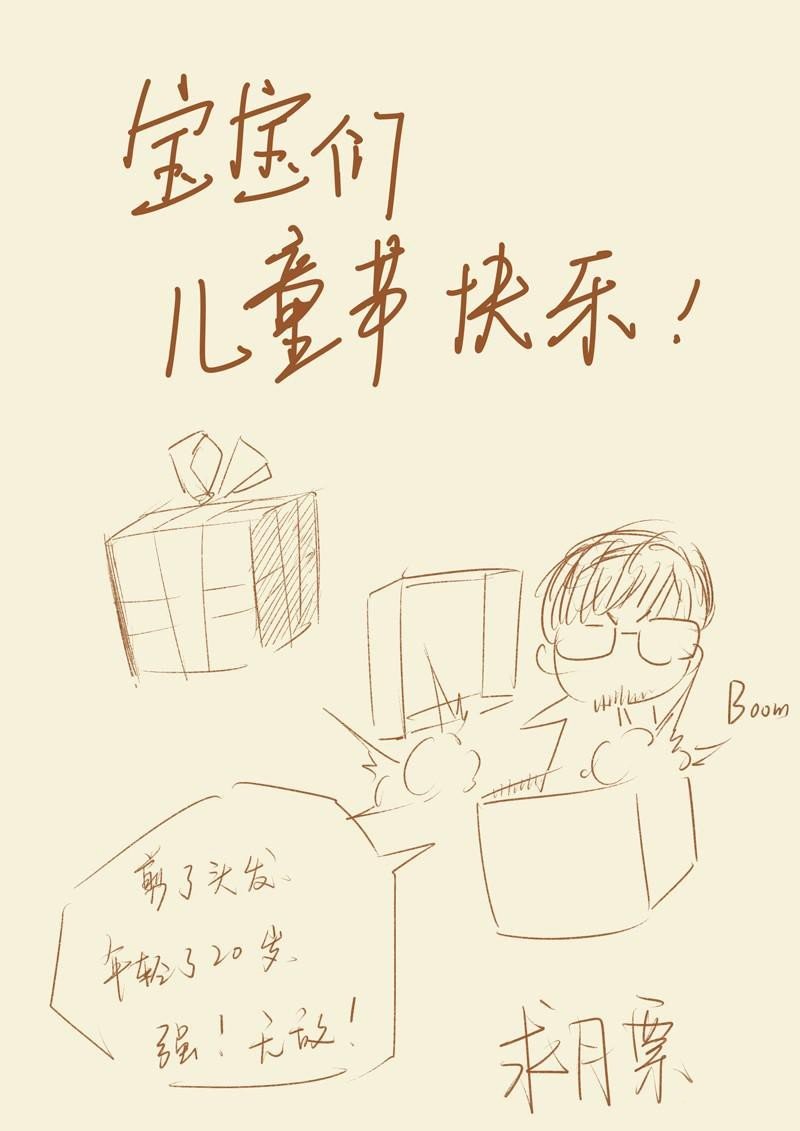 宝宝们
儿童节快乐！
Boom
剪了头发、
年轻了20岁、
强！无敌！
求月票